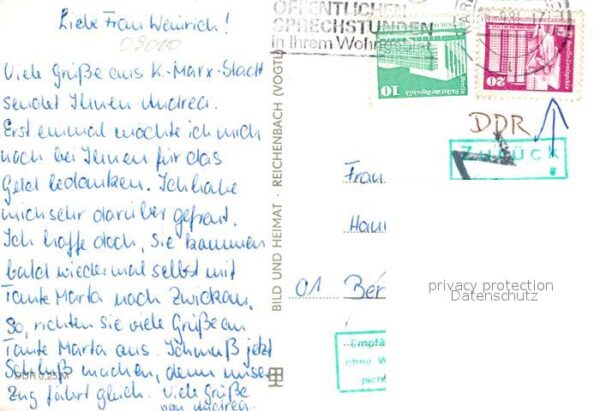 Liebe Frau Weinrich!
09010
Viele Grüße aus K.-Marx-Stadt
sendet Ihnen Andrea.
Erst einmal möchte ich mich
noch bei Ihnen für das
Geld bedanken. Ich habe
mich sehr darüber gefreut.
Ich hoffe doch, Sie kommen
bald wiedermal selbst mit
Tante Marta nach Zwickau.
So, richten sie viele Grüße an
Tante Marta aus. Ich muß jetzt
Schluß machen, denn unser
Zug fährt gleich. Viele Grüße
von Andrea.
DDR 0,25 M
BILD UND HEIMAT REICHENBACH (VOGTL)
ÖFFENTLICHEN
SPRECHSTUNDEN
in Ihrem Wohngebiet
10
20
DDR
ZURÜCK
Frau
01 Ber
privacy protection
Datenschutz
ohne W